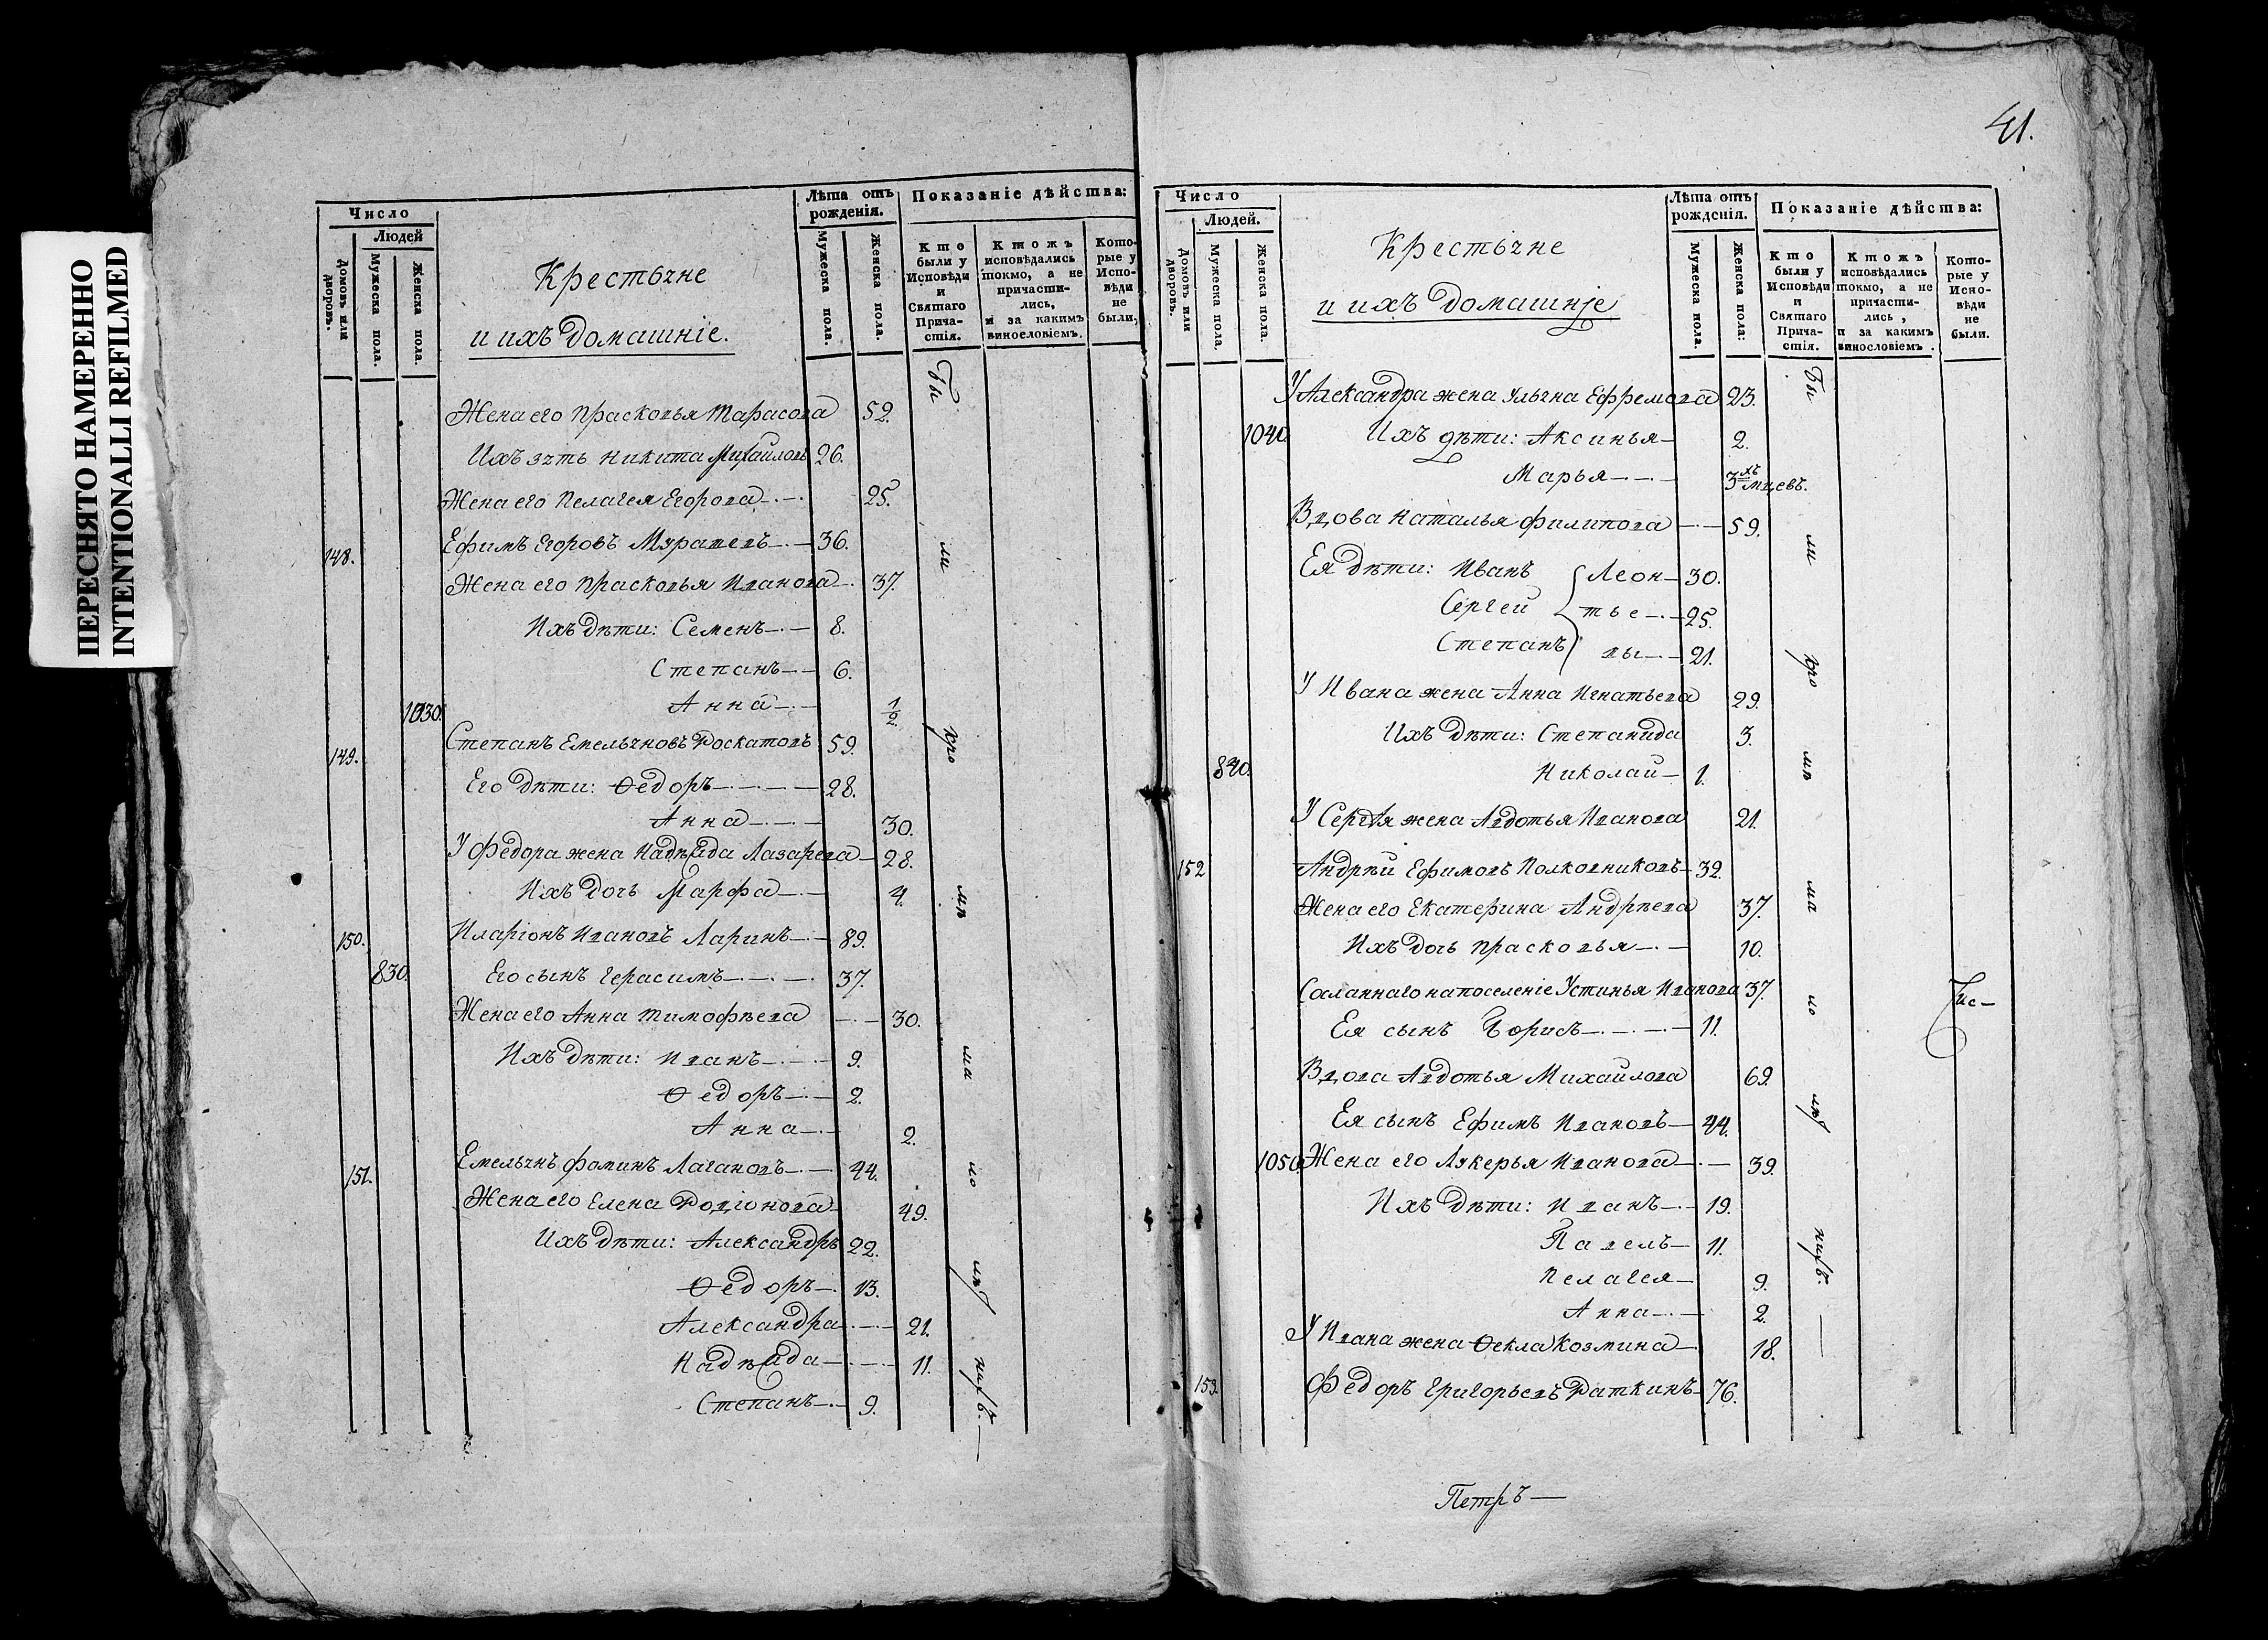 ПЕРЕСНЯТО НАМЕРЕННО
INTENTIONALLI REFILMED
Число
Людей
Домовъ или дворовъ.
Мужеска пола.
Женска пола.
Крестьяне
и ихъ домашніе.
Лѣта отъ рожденія.
Мужеска пола.
Женска пола.
Показаніе дѣйства:
Кто были у Исповѣди и Святаго Прича-стія.
Ктожъ исповѣдались токмо, а не причасти-лись, и за какимъ винословіемъ.
Кото-рые у Испо-вѣди не были,
Жена его Прасковья Тарасова 59.
Ихъ зять Никита Михайловъ 26.
Жена его Пелагея Егорова 25.
148. Ефимъ Егоровъ 36.
Жена его Прасковья Иванова 37.
Ихъ дѣти: Семенъ 8.
Степанъ 6.
1030. Анна 1/2.
149. Степанъ Емельяновъ Роскатовъ 59.
Его дѣти: Ѳедоръ 28.
Анна 30.
У Федора жена Надѣжда Лазарева 28.
Ихъ дочь Марфа 4.
150. Иларіонъ Ивановъ Ларинъ 89.
830. Его сынъ Герасимъ 37.
Жена его Анна Тимофѣева 30.
Ихъ дѣти: Иванъ 9.
Ѳедоръ 2.
Анна 2.
151. Емельянъ Фоминъ Лагановъ 44.
Жена его Елена Родіонова 49.
Ихъ дѣти: Александръ 22.
Ѳедоръ 13.
Александра 21.
Надѣжда 11.
Степанъ 9.
Бы
ли
41.
Число
Людей.
Домовъ или дворовъ.
Мужеска пола.
Женска пола.
Крестьяне
и ихъ домашніе
Лѣта отъ рожденія.
Мужеска пола.
Женска пола:
Показаніе дѣйства:
Кто были у Исповѣди и Святаго Прича-стія.
Ктожъ исповѣдались токмо, а не причасти-лись, и за какимъ винословіемъ.
Кото-рые у Испо-вѣди не были.
У Александра жена Ульяна Ефремова 23.
1040. Ихъ дѣти: Аксинья 2.
Марья 3хъ мцевъ.
Вдова Наталья Филипова 59.
Ея дѣти: Иванъ Леон 30.
Сергей тье 25.
Степанъ вы 21.
У Ивана жена Анна Игнатьева 29.
Ихъ дѣти: Степанида 3.
840. Николай 1.
У Сергѣя жена Авдотья Иванова 21.
152 Андрѣй Ефимовъ Полковниковъ 39.
Жена его Екатерина Андрѣева 37.
Ихъ дочь Прасковья 10.
Сосланнаго на поселеніе Устинья Иванова 37.
Ея сынъ Борисъ 11.
Вдова Авдотья Михайлова 69.
Ея сынъ Ефимъ Ивановъ 44.
1050. Жена его Лукерья Иванова 39.
Ихъ дѣти: Иванъ 19.
Павелъ 11.
Пелагея 9.
Анна 2.
У Ивана жена Ѳекла Козмина 18.
153. Федоръ Григорьевъ Раткинъ 76.
Бы
ли
Петръ